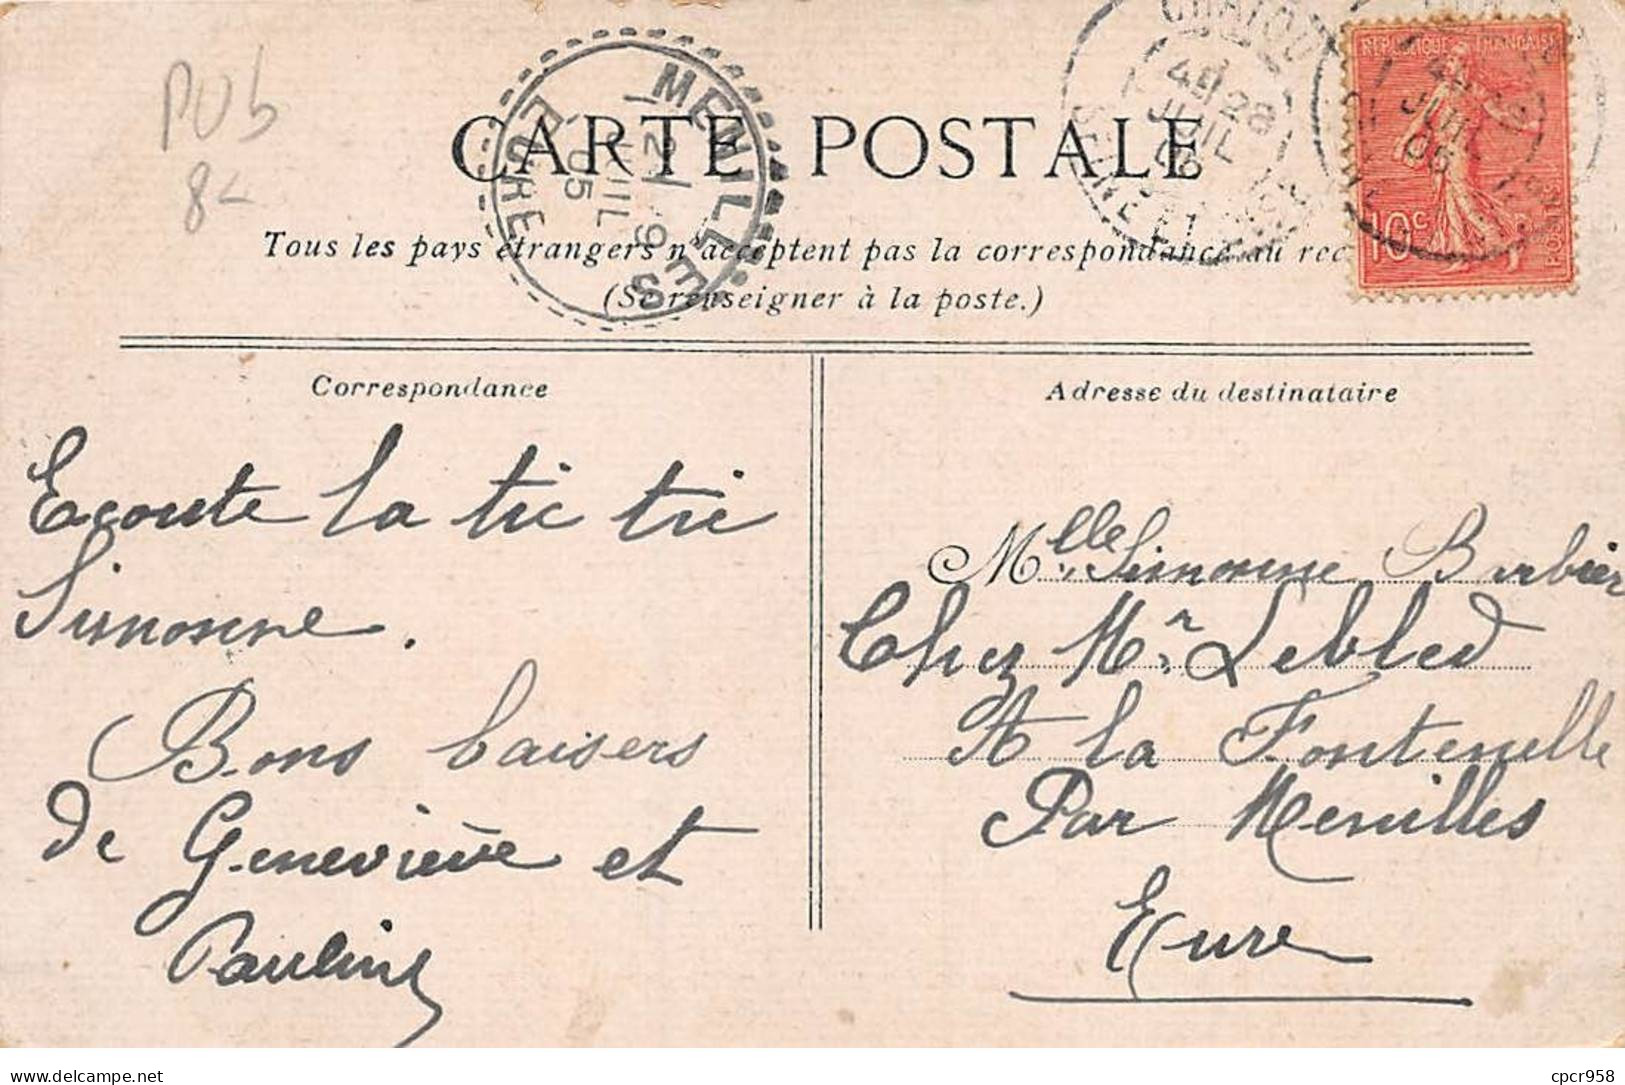 Pub
8-
MENILLES
29
JUIL
05
EURE
4E 28
JUIL
05
SEINE ET
REPUBLIQUE FRANÇAISE
10c
POSTES
CARTE POSTALE
Tous les pays étrangers n'acceptent pas la correspondance au rec
(Se renseigner à la poste.)
Correspondance
Ecoute la tic tic
Simonne.
Bons baisers
de Geneviève et
Pauline
Adresse du destinataire
Mlle Simonne Barbier
Chez Mr Lebled
A la Fontenelle
Par Menilles
Eure
delcampe.net
cpcr958